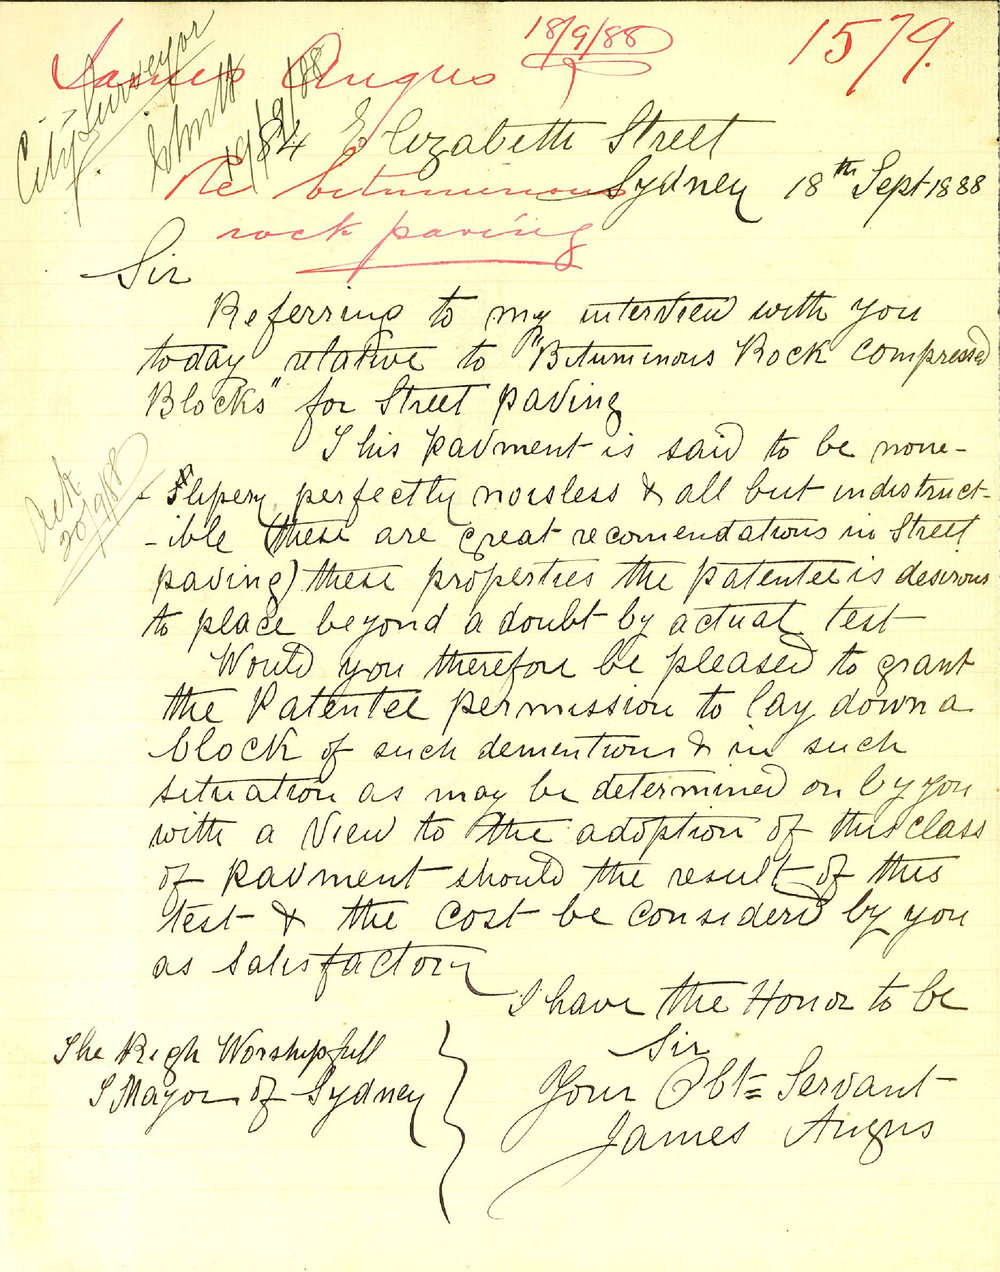 18/9/88
1579.
James Angus
City Surveyor
19/9/88
84 Elizabeth Street
Re bituminous
Sydney 18th Sept 1888
rock paving
Sir
Referring to my interview with you
today relative to "Bituminous Rock compressed
Blocks" for Street paving
This pavment is said to be none-
-slipery perfectly noisless & all but indistruct-
-ible (these are great recomendations in Street
paving) these properties the patentee is desirous
to place beyond a doubt by actual test
Ack
20/9/88
Would you therefore be pleased to grant
the Patentee permission to lay down a
block of such dementions & in such
situation as may be determined on by you
with a view to the adoption of this class
of pavment should the result of this
test & the cost be considerd by you
as satisfactory
I have the Honor to be
Sir
Your Obt= Servant
James Angus
The Righ Worshipfull
T Mayor of Sydney